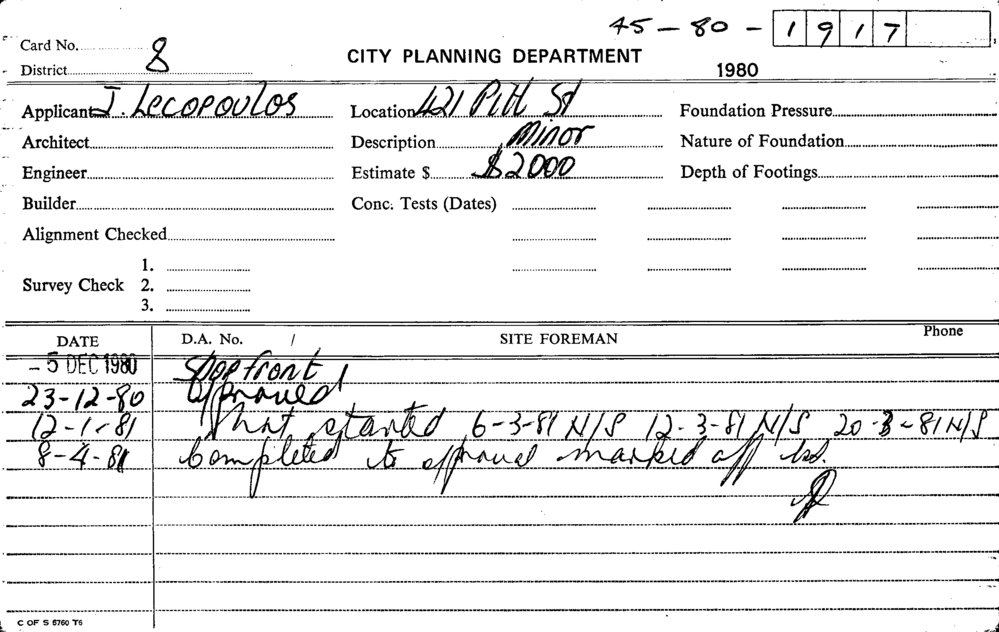 45-80-1917
Card No.
District 8
CITY PLANNING DEPARTMENT
1980
Applicant J. Lecopoulos
Location 421 Pitt St
Foundation Pressure
Architect
Description Minor
Nature of Foundation
Engineer
Estimate $ $2000
Depth of Footings
Builder
Conc. Tests (Dates)
Alignment Checked
Survey Check 1.
2.
3.
DATE D.A. No. / SITE FOREMAN Phone
-5 DEC 1980 Shopfront
23-12-80 Approved
12-1-81 Not started 6-3-81 N/S 12-3-81 N/S 20-3-81 N/S
8-4-81 Completed to approval marked off
C OF S 6760 T6